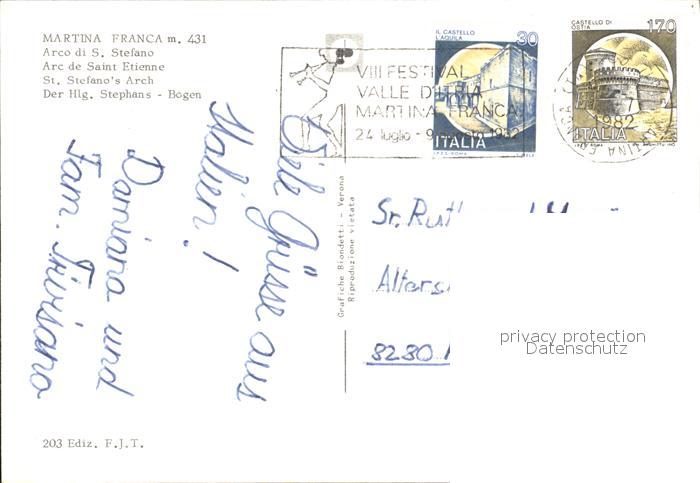 MARTINA FRANCA m. 431
Arco di S. Stefano
Arc de Saint Etienne
St. Stefano's Arch
Der Hlg. Stephans - Bogen
VIII FESTIVAL
VALLE D'ITRIA
MARTINA FRANCA
24 luglio - 9 agosto 1982
IL CASTELLO
L'AQUILA
30
ITALIA
I.P.Z.S. ROMA
CASTELLO DI
OSTIA
170
ITALIA
I.P.Z.S. ROMA
1982
Viele Grüsse aus
Italien!
Damiana und
Fam. Trivisano
Grafiche Biondetti - Verona
Riproduzione vietata
Sr.
8230
privacy protection
Datenschutz
203 Ediz. F.J.T.